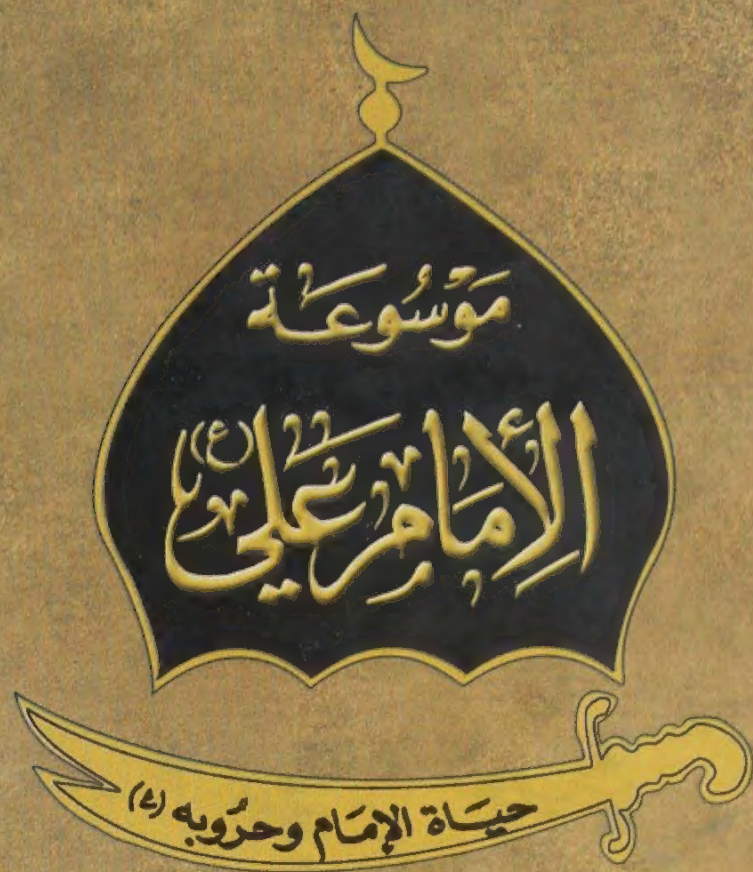 مَوْسُوعَة
الإِمَامِ عَلي (ع)
حيَاة الإمَام وحرُوبه (ع)